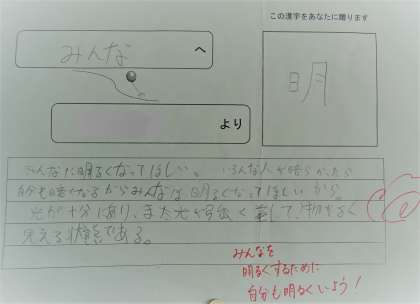 この漢字をあなたに贈ります
みんな
へ
明
より
みんなに明るくなってほしい。いろんな人が暗らかったら
自分も暗くなるからみんなは明るくなってほしいから。
光が十分にあり、また光が強く差して、物がよく
見える状態である。
みんなを
明るくするために
自分も明るくいよう!